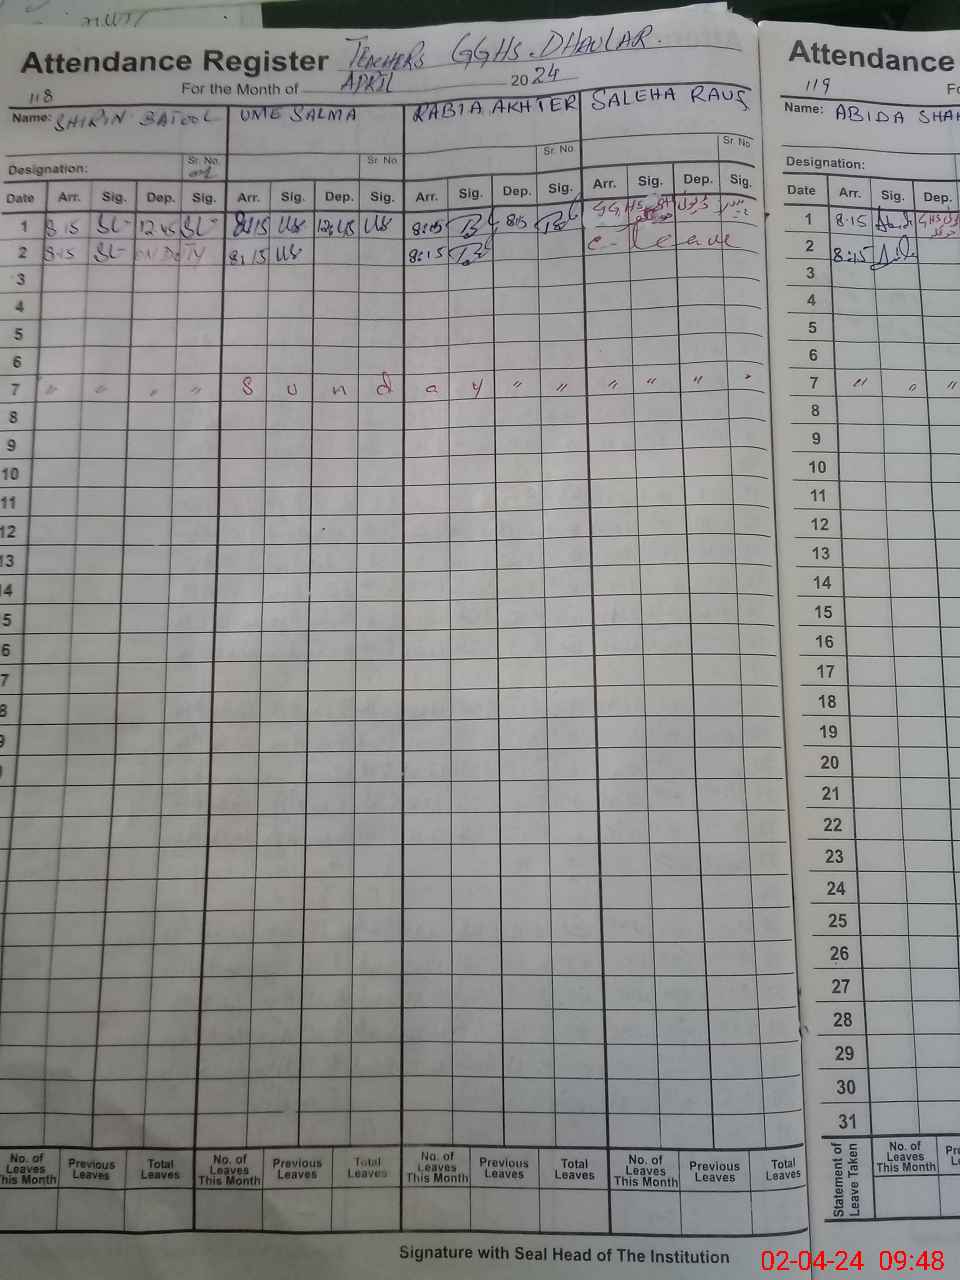 Attendance Register TEACHERS GGHS. DHAULAR.
118 For the Month of APRIL 2024
Name: SHIRIN BATOOL UME SALMA RABIA AKHTER SALEHA RAUF
Sr. No. Sr. No. Sr. No. Sr. No
Designation:
Date Arr. Sig. Dep. Sig. Arr. Sig. Dep. Sig. Arr. Sig. Dep. Sig. Arr. Sig. Dep. Sig.
1 8:15 12:45 8:15 US 12:45 US 8:15 8:15 GGHS
2 8:15 ON DUTY 8:15 US 8:15 C-leave
3
4
5
6
7 " " " " S u n d a y " " " " " "
8
9
10
11
12
13
14
5
6
7
8
9
No. of Leaves This Month Previous Leaves Total Leaves No. of Leaves This Month Previous Leaves Total Leaves No. of Leaves This Month Previous Leaves Total Leaves No. of Leaves This Month Previous Leaves Total Leaves
Signature with Seal Head of The Institution
Attendance
119 Fo
Name: ABIDA SHAH
Designation:
Date Arr. Sig. Dep.
1 8:15 GHS
2 8:15
3
4
5
6
7 " " "
8
9
10
11
12
13
14
15
16
17
18
19
20
21
22
23
24
25
26
27
28
29
30
31
Statement of Leave Taken No. of Leaves This Month
02-04-24 09:48